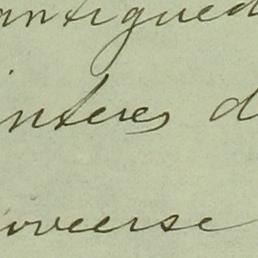 antigued
interes d
oveerse